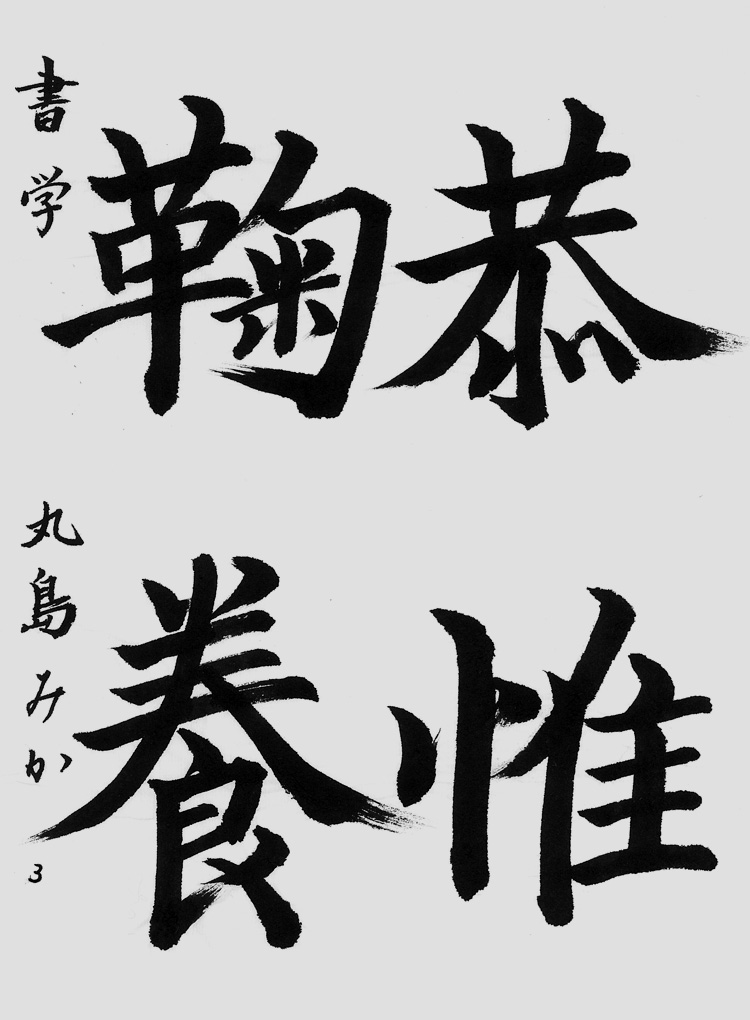 恭惟
鞠養
書学 丸島みか 3